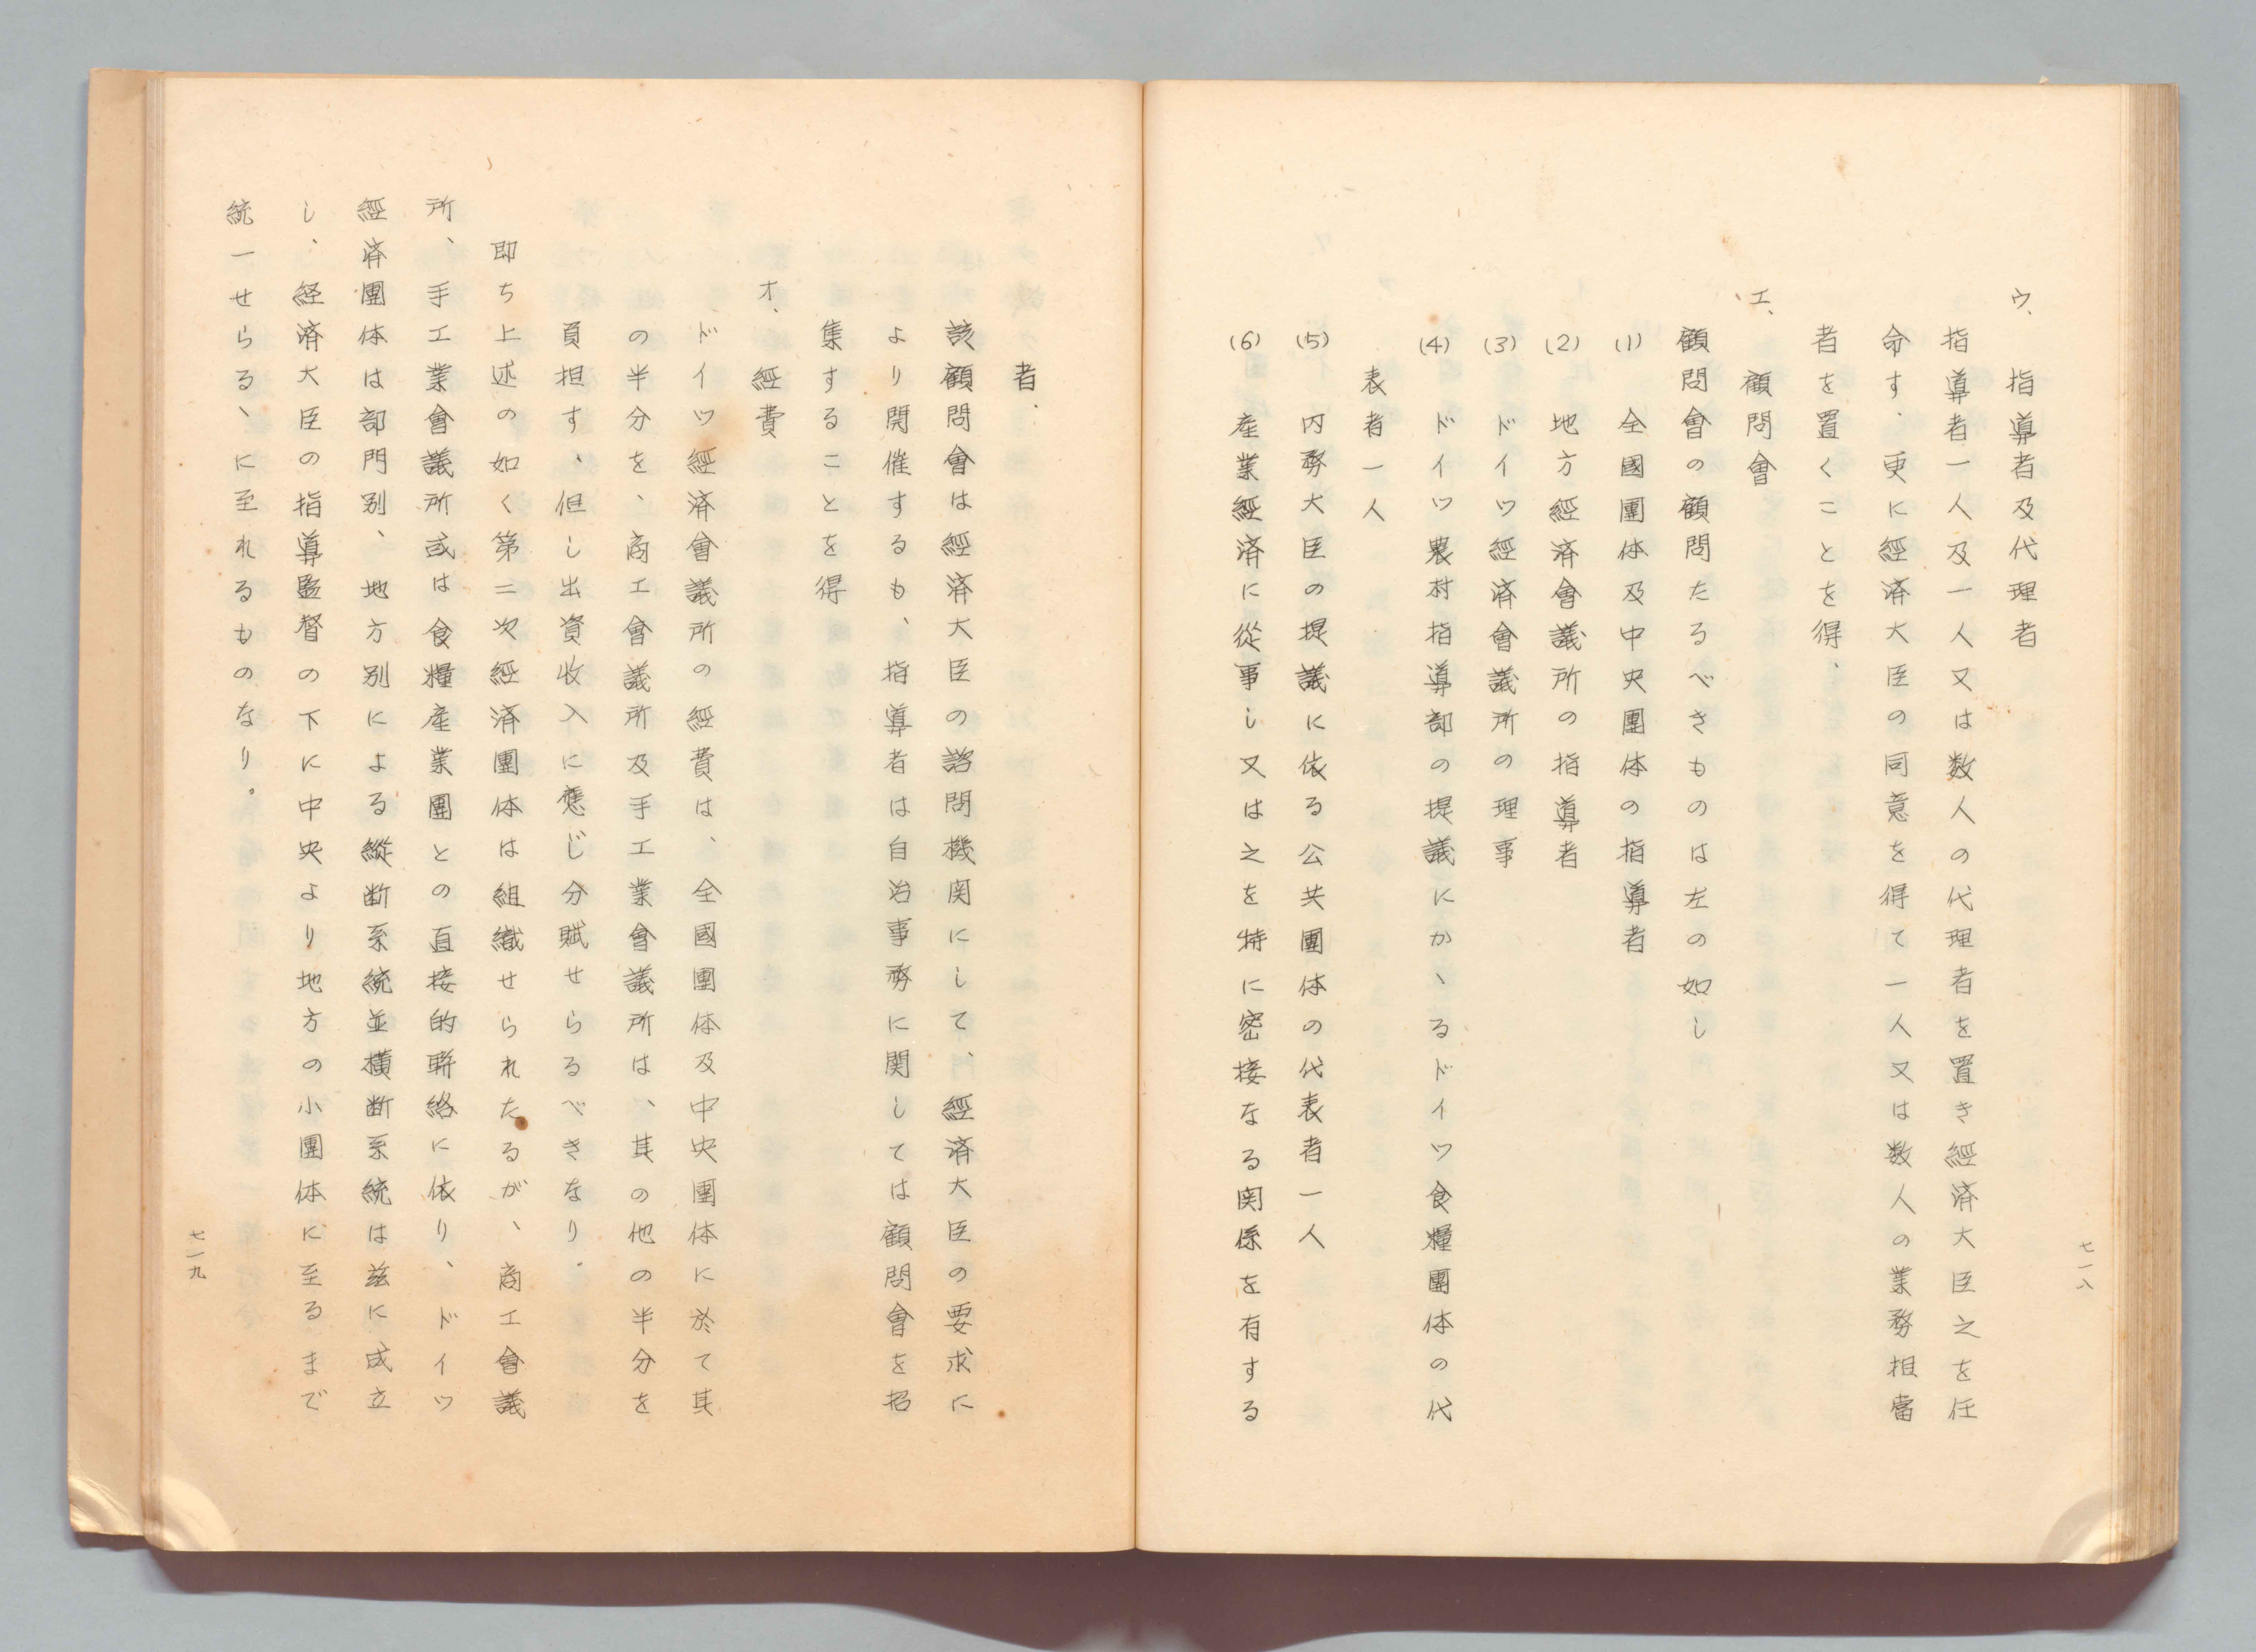 ウ、指導者及代理者
指導者一人及一人又は数人の代理者を置き經済大臣之を任
命す、更に經済大臣の同意を得て一人又は数人の業務担當
者を置くことを得、
エ、顧問會
顧問會の顧問たるべきものは左の如し
(1) 全國團体及中央團体の指導者
(2) 地方經済會議所の指導者
(3) ドイツ經済會議所の理事
(4) ドイツ農村指導部の提議にかゝるドイツ食糧團体の代
表者一人
(5) 内務大臣の提議に依る公共團体の代表者一人
(6) 産業經済に從事し又は之を特に密接なる関係を有する
七一八
者.
該顧問會は經済大臣の諮問機関にして、經済大臣の要求に
より開催するも、指導者は自治事務に関しては顧問會を招
集することを得
オ、經費
ドイツ經済會議所の經費は、全國團体及中央團体に於て其
の半分を、商工會議所及手工業會議所は、其の他の半分を
負担す、但し出資收入に應じ分賦せらるべきなり.
即ち上述の如く第二次經済團体は組織せられたるが、商工會議
所、手工業會議所或は食糧産業團との直接的聨絡に依り、ドイツ
經済團体は部門別、地方別による縱断系統並横断系統は茲に成立
し、経済大臣の指導監督の下に中央より地方の小團体に至るまで
統一せらるゝに至れるものなり。
七一九